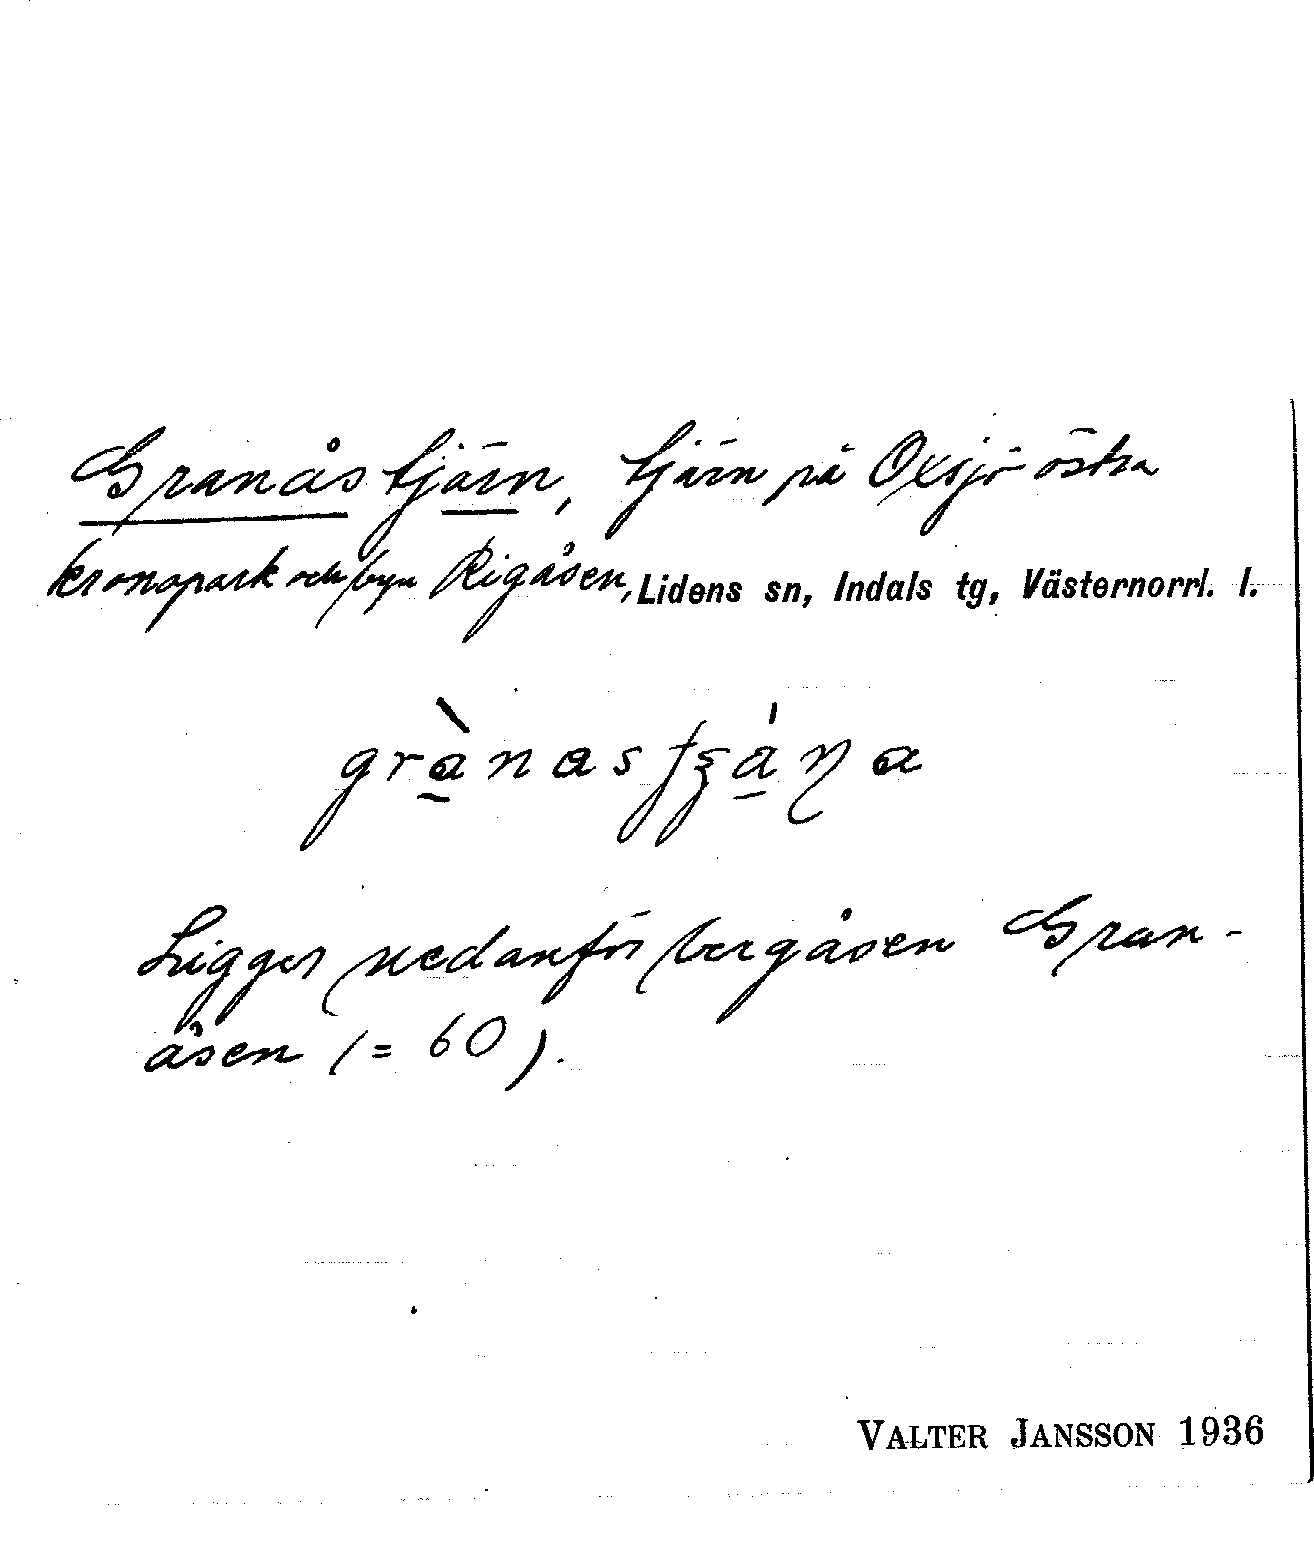 Granåstjärn, tjärn på Oxsjö östra
kronopark och byn Rigåsen, Lidens sn, Indals tg, Västernorrl. l.
Ligger nedanför bergåsen Gran-
åsen (= 60).
VALTER JANSSON 1936